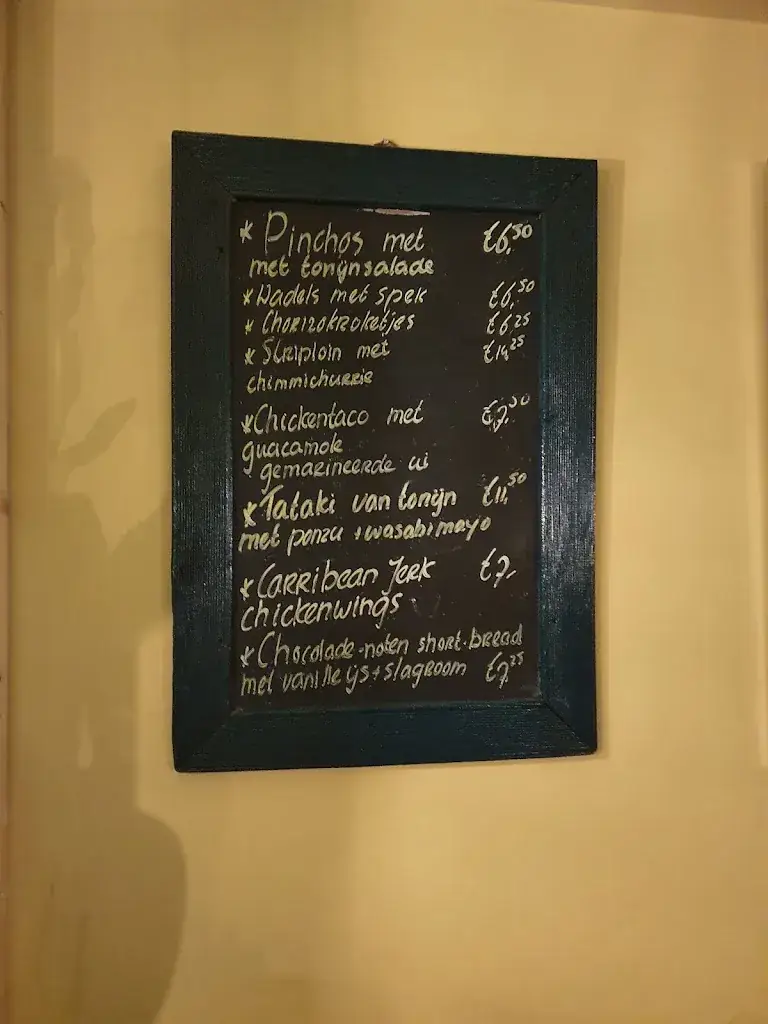 * Pinchos met €6,50
met tonijnsalade
* Dadels met spek €6,50
* Chorizokroketjes €6,25
* Striploin met €14,25
chimmichurrie
* Chickentaco met €7,50
guacamole
gemarineerde ui
* Tataki van tonijn €11,50
met ponzu + wasabimayo
* Carribean Jerk €7,-
chickenwings
* Chocolade-noten short-bread
met vanille ijs + slagroom €7,25